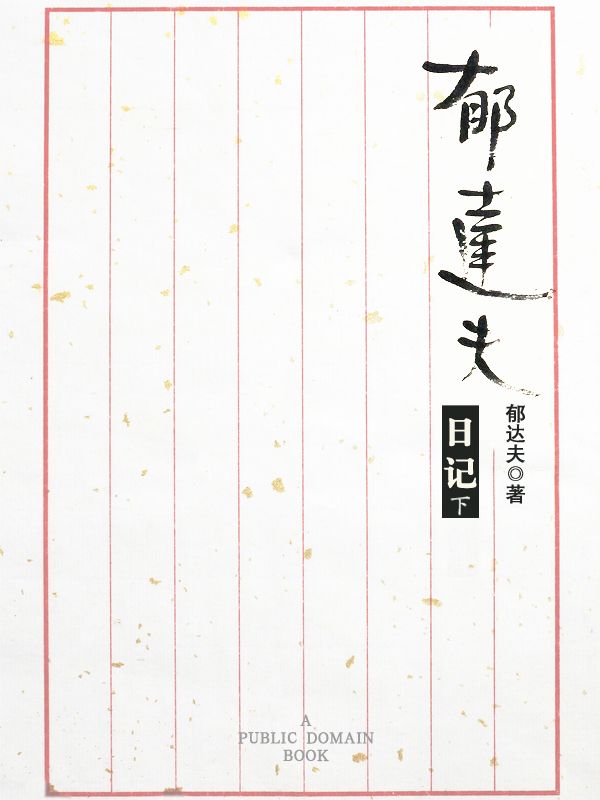 郁達夫
日记下
郁达夫◎著
A
PUBLIC DOMAIN
BOOK